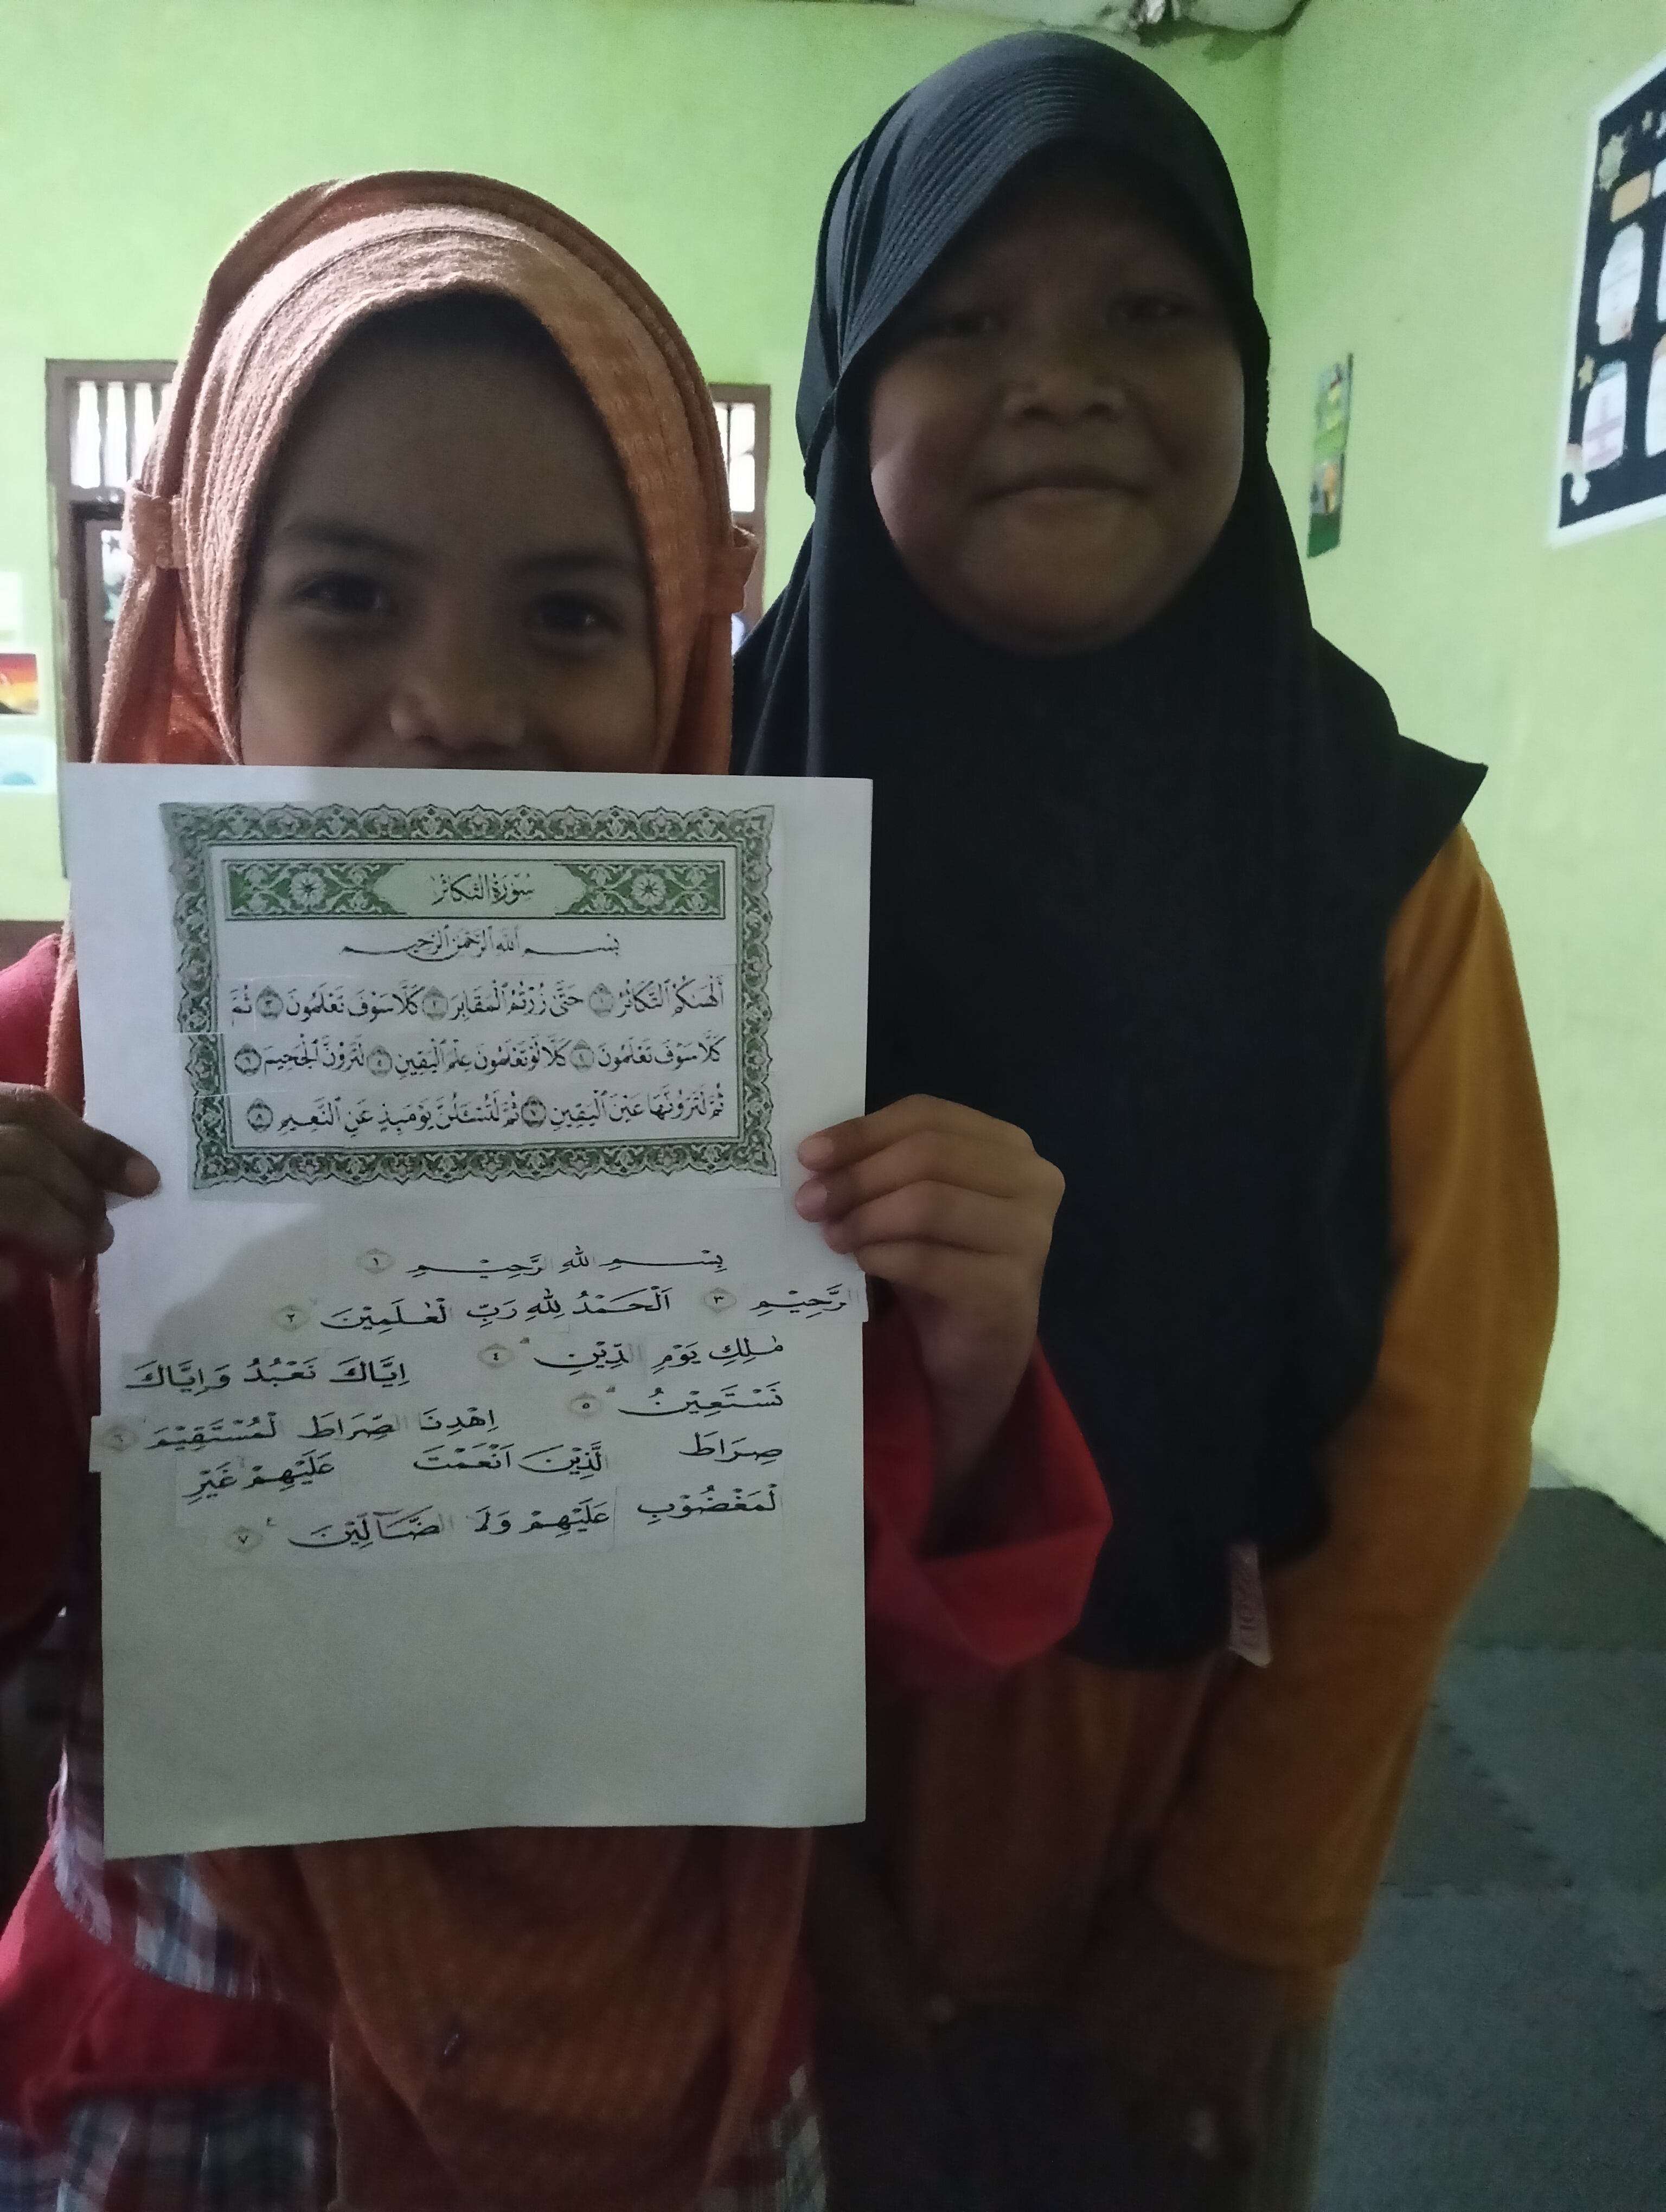 سُورَةُ التَّكَاثُرِ
بِسْمِ ٱللَّهِ ٱلرَّحْمَٰنِ ٱلرَّحِيمِ
أَلْهَىٰكُمُ ٱلتَّكَاثُرُ ١ حَتَّىٰ زُرْتُمُ ٱلْمَقَابِرَ ٢ كَلَّا سَوْفَ تَعْلَمُونَ ٣ ثُمَّ
كَلَّا سَوْفَ تَعْلَمُونَ ٤ كَلَّا لَوْ تَعْلَمُونَ عِلْمَ ٱلْيَقِينِ ٥ لَتَرَوُنَّ ٱلْجَحِيمَ ٦
ثُمَّ لَتَرَوُنَّهَا عَيْنَ ٱلْيَقِينِ ٧ ثُمَّ لَتُسْـَٔلُنَّ يَوْمَئِذٍ عَنِ ٱلنَّعِيمِ ٨
بِسْمِ اللهِ الرَّحِيْمِ ١
الرَّحِيْمِ ٣ اَلْحَمْدُ لِلّٰهِ رَبِّ لْعٰلَمِيْنَ ٢
مٰلِكِ يَوْمِ الدِّيْنِ ٤ اِيَّاكَ نَعْبُدُ وَاِيَّاكَ
نَسْتَعِيْنُ ٥ اِهْدِنَا الصِّرَاطَ لْمُسْتَقِيْمَ ٦
صِرَاطَ لَّذِيْنَ اَنْعَمْتَ عَلَيْهِمْ غَيْرِ
لْمَغْضُوْبِ عَلَيْهِمْ وَلَا الضَّاۤلِّيْنَ ٧